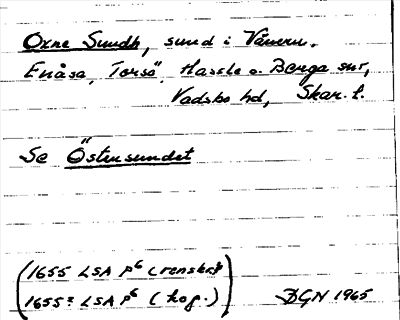 Oxne Sundh, sund i Vänern.
Enåsa, Torsö, Hassle o. Berga snr,
Vadsbo hd, Skar. l.
Se Östersundet
(1655 LSA P6 (renskr)
(1655: LSA P6 (kog.)) DGN 1965